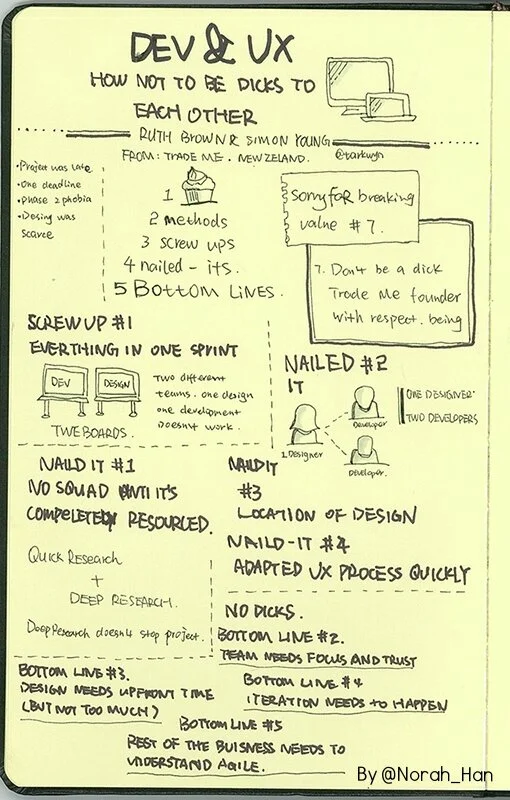 DEV & UX
HOW NOT TO BE DICKS TO
EACH OTHER
RUTH BROWN & SIMON YOUNG
FROM: TRADE ME. NEWZELAND.
@tarkwyn
•Project was late
•One deadline
•Phase 2 phobia
•Desing was
scarce
1
2 methods
3 screw ups
4 nailed - its.
5 BOTTOM LINES.
Sorry foR breaking
value #7.
7. Don't be a dick
Trade Me founder
with respect. being
SCREW UP #1
EVERTHING IN ONE SPRINT
DEV
DESIGN
Two different
teams. one design
one development
Doesn't work.
TWEBOARDS.
NAILED #2
IT
1 Designer
Developer
Developer.
ONE DESIGNER'
TWO DEVELOPERS
NAILD IT #1
NO SQUAD UNTIL IT'S
COMPELETELY RESOURCED.
QUICK RESEARCH
+
DEEP RESEARCH.
Deep Research doesn't stop project.
NAILD IT
#3
LOCATION OF DESIGN
NAILD-IT #4
ADAPTED UX PROCESS QUICKLY
NO DICKS.
BOTTOM LINE #2.
TEAM NEEDS FOCUS AND TRUST
BOTTOM LINE #3.
DESIGN NEEDS UPFRONT TIME
(BUT NOT TOO MUCH)
BOTTOM LINE #4
ITERATION NEEDS TO HAPPEN
BOTTOM LINE #5
REST OF THE BUISNESS NEEDS TO
UNDERSTAND AGILE.
By @Norah_Han